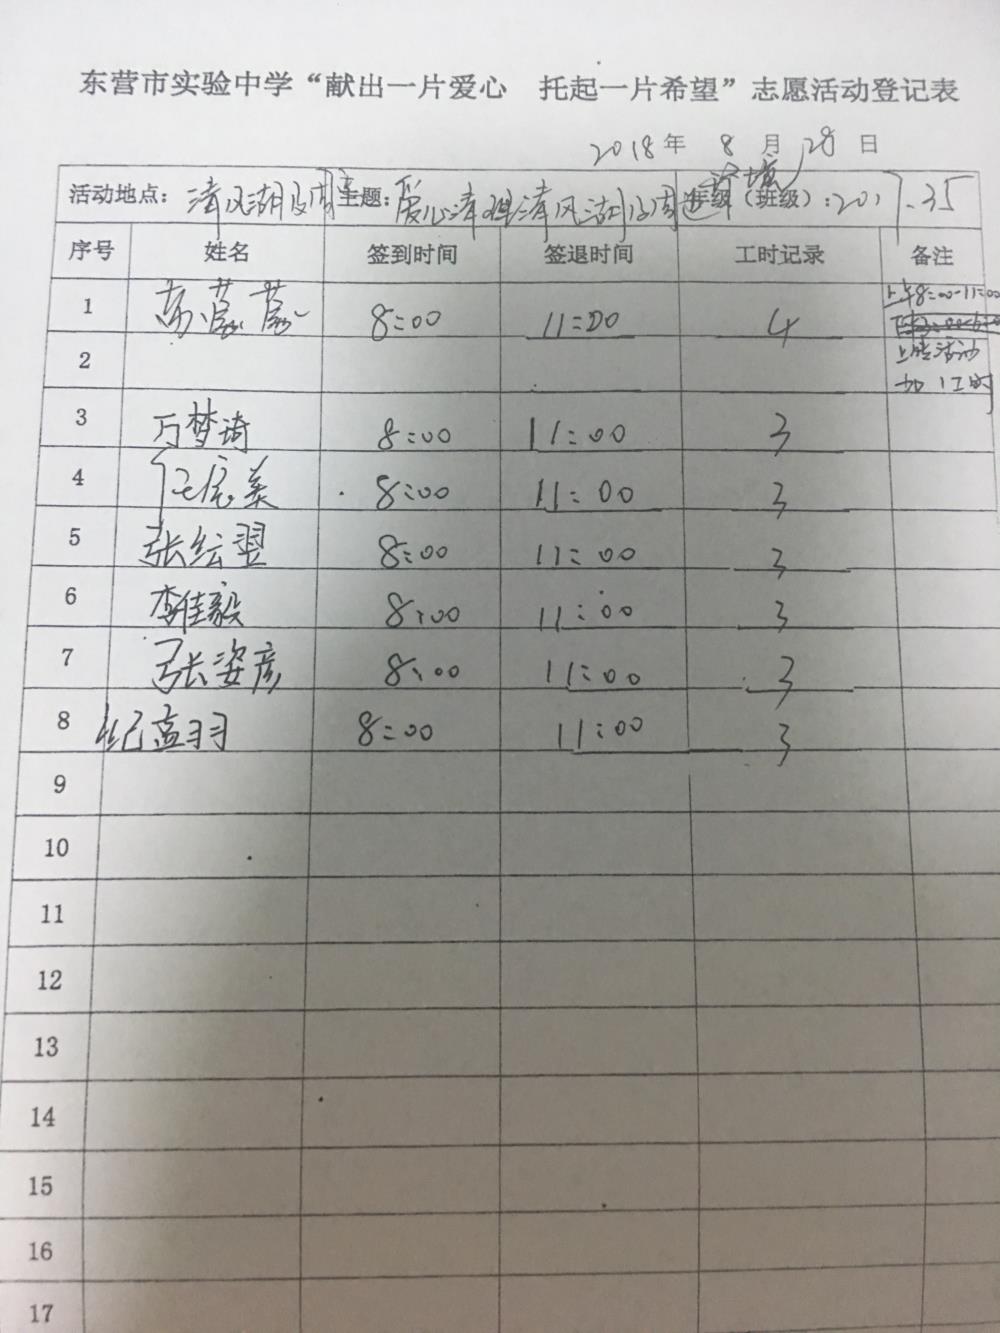 东营市实验中学“献出一片爱心 托起一片希望”志愿活动登记表
2018年 8月 28日
活动地点：清风湖及周边 主题：爱心清理清风湖及周边环境 年级（班级）：2017.35
序号 姓名 签到时间 签退时间 工时记录 备注
1 8:00 11:00 4 上午8:00-11:00
2 上传活动
加1工时
3 万梦琦 8:00 11:00 3
4 8:00 11:00 3
5 张绘翌 8:00 11:00 3
6 李佳毅 8:00 11:00 3
7 张姿彦 8:00 11:00 3
8 纪孟羽 8:00 11:00 3
9
10
11
12
13
14
15
16
17